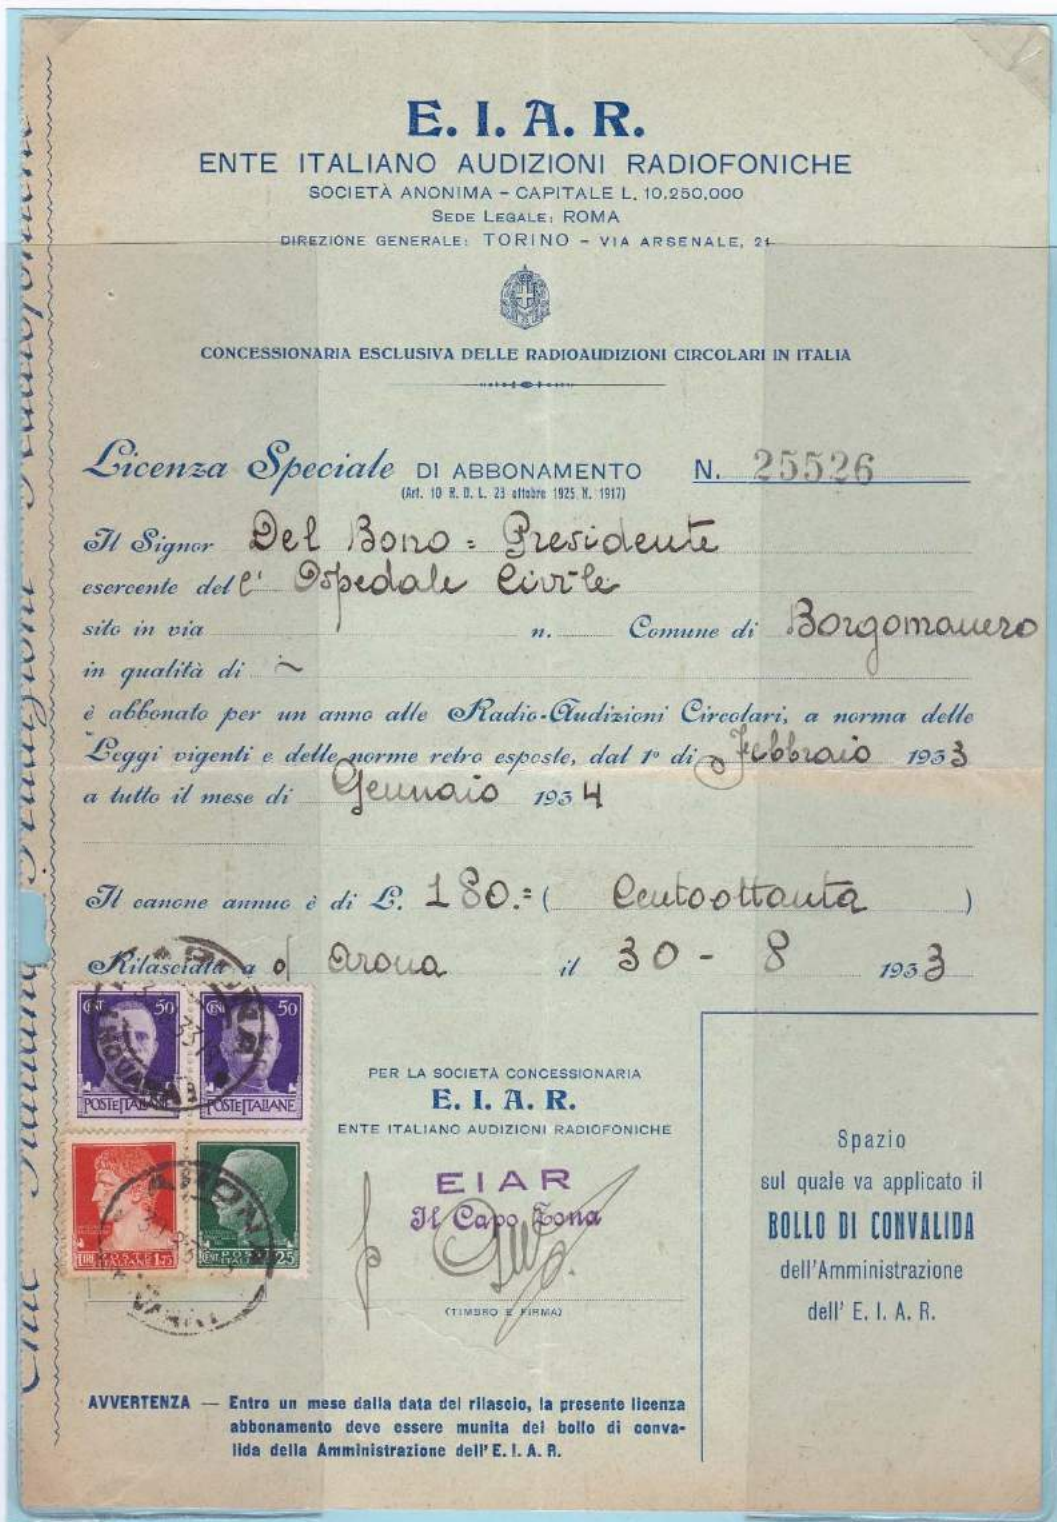 E. I. A. R.
ENTE ITALIANO AUDIZIONI RADIOFONICHE
SOCIETÀ ANONIMA – CAPITALE L. 10.250,000
SEDE LEGALE: ROMA
DIREZIONE GENERALE: TORINO – VIA ARSENALE, 21
CONCESSIONARIA ESCLUSIVA DELLE RADIOAUDIZIONI CIRCOLARI IN ITALIA
Licenza Speciale DI ABBONAMENTO N. 25526
(Art. 10 R. D. L. 23 ottobre 1925 N. 1917)
Il Signor Del Bono = Presidente
esercente dell' Ospedale Civile
sito in via n. Comune di Borgomanero
in qualità di ~
è abbonato per un anno alle Radio-Audizioni Circolari, a norma delle
Leggi vigenti e delle norme retro esposte, dal 1° di Febbraio 1933
a tutto il mese di Gennaio 1934
Il canone annuo è di L. 180.= ( Centoottanta )
Rilasciata a Arona il 30 - 8 1933
CENT 50 CENT 50
POSTE ITALIANE POSTE ITALIANE
LIRE POSTE ITALIANE 1,75
CENT. POSTE ITALIANE 25
ARONA
NOVARA
PER LA SOCIETÀ CONCESSIONARIA
E. I. A. R.
ENTE ITALIANO AUDIZIONI RADIOFONICHE
EIAR
Il Capo Zona
(TIMBRO E FIRMA)
Spazio
sul quale va applicato il
BOLLO DI CONVALIDA
dell'Amministrazione
dell' E. I. A. R.
AVVERTENZA — Entro un mese dalla data del rilascio, la presente licenza
abbonamento deve essere munita del bollo di conva-
lida della Amministrazione dell'E. I. A. R.